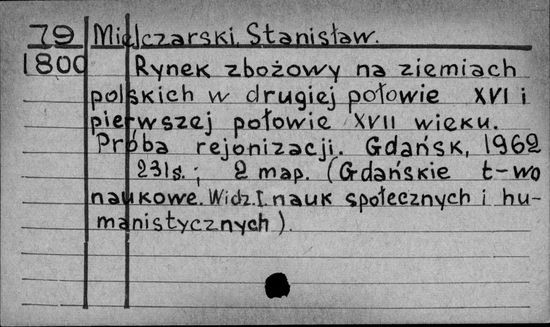 79 Mielczarski, Stanisław.
1800 Rynek zbożowy na ziemiach
polskich w drugiej połowie XVI i
pierwszej połowie XVII wieku.
Próba rejonizacji. Gdańsk, 1962
231s.; 2 map. (Gdańskie t-wo
naukowe. Widz.I. nauk społecznych i hu-
manistycznych).